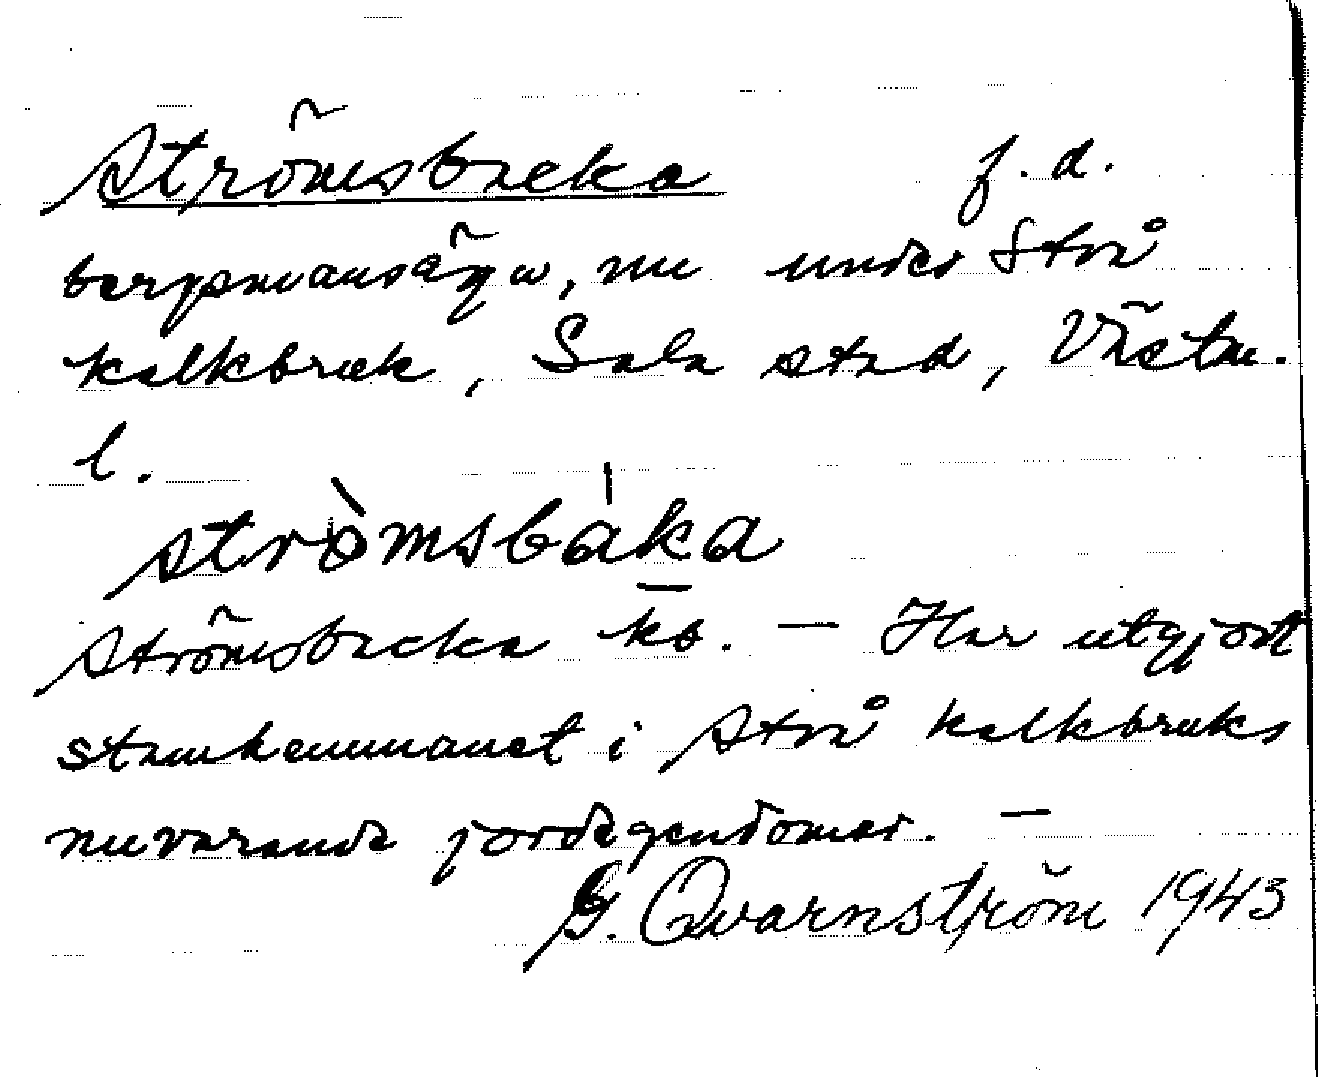 Strömsbacka f. d.
bergsmansägo, nu under Strå
kalkbruk, Sala stad, Västm.
l.
stròmsbáka
Strömsbacka kb. — Har utgjort
stamhemmanet i Strå kalkbruks
nuvarande jordegendomar. —
G. Qvarnström 1943